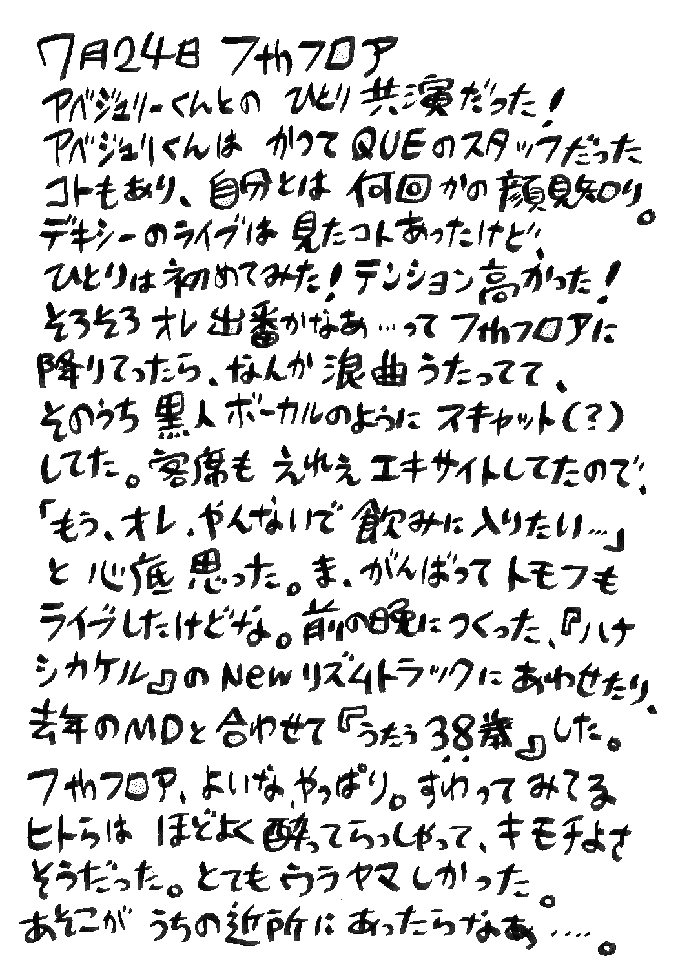 7月24日 7thフロア
アベジュリーくんとの ひとり共演だった!
アベジュリくんは かつて QUEのスタッフだった
コトもあり、自分とは 何回かの顔見知り。
デキシーのライブは 見たコトあったけど、
ひとりは初めてみた!テンション高かった!
そろそろ オレ出番かなあ…って 7thフロアに
降りてったら、なんか浪曲うたってて、
そのうち黒人ボーカルのように スキャット(?)
してた。客席も えれえ エキサイトしてたので、
「もう、オレ、やんないで 飲みに入りたい…」
と 心底 思った。ま、がんばって トモフも
ライブしたけどな。前の晩につくった、『ハナ
シカケル』の New リズムトラックに あわせたり、
去年のMDと合わせて『うたう38歳』した。
7thフロア、よいな、やっぱり。すわって みてる
ヒトらは ほどよく酔ってらっしゃって、キモチよさ
そうだった。とても ウラヤマしかった。
あそこが うちの近所に あったらなあ‥‥。